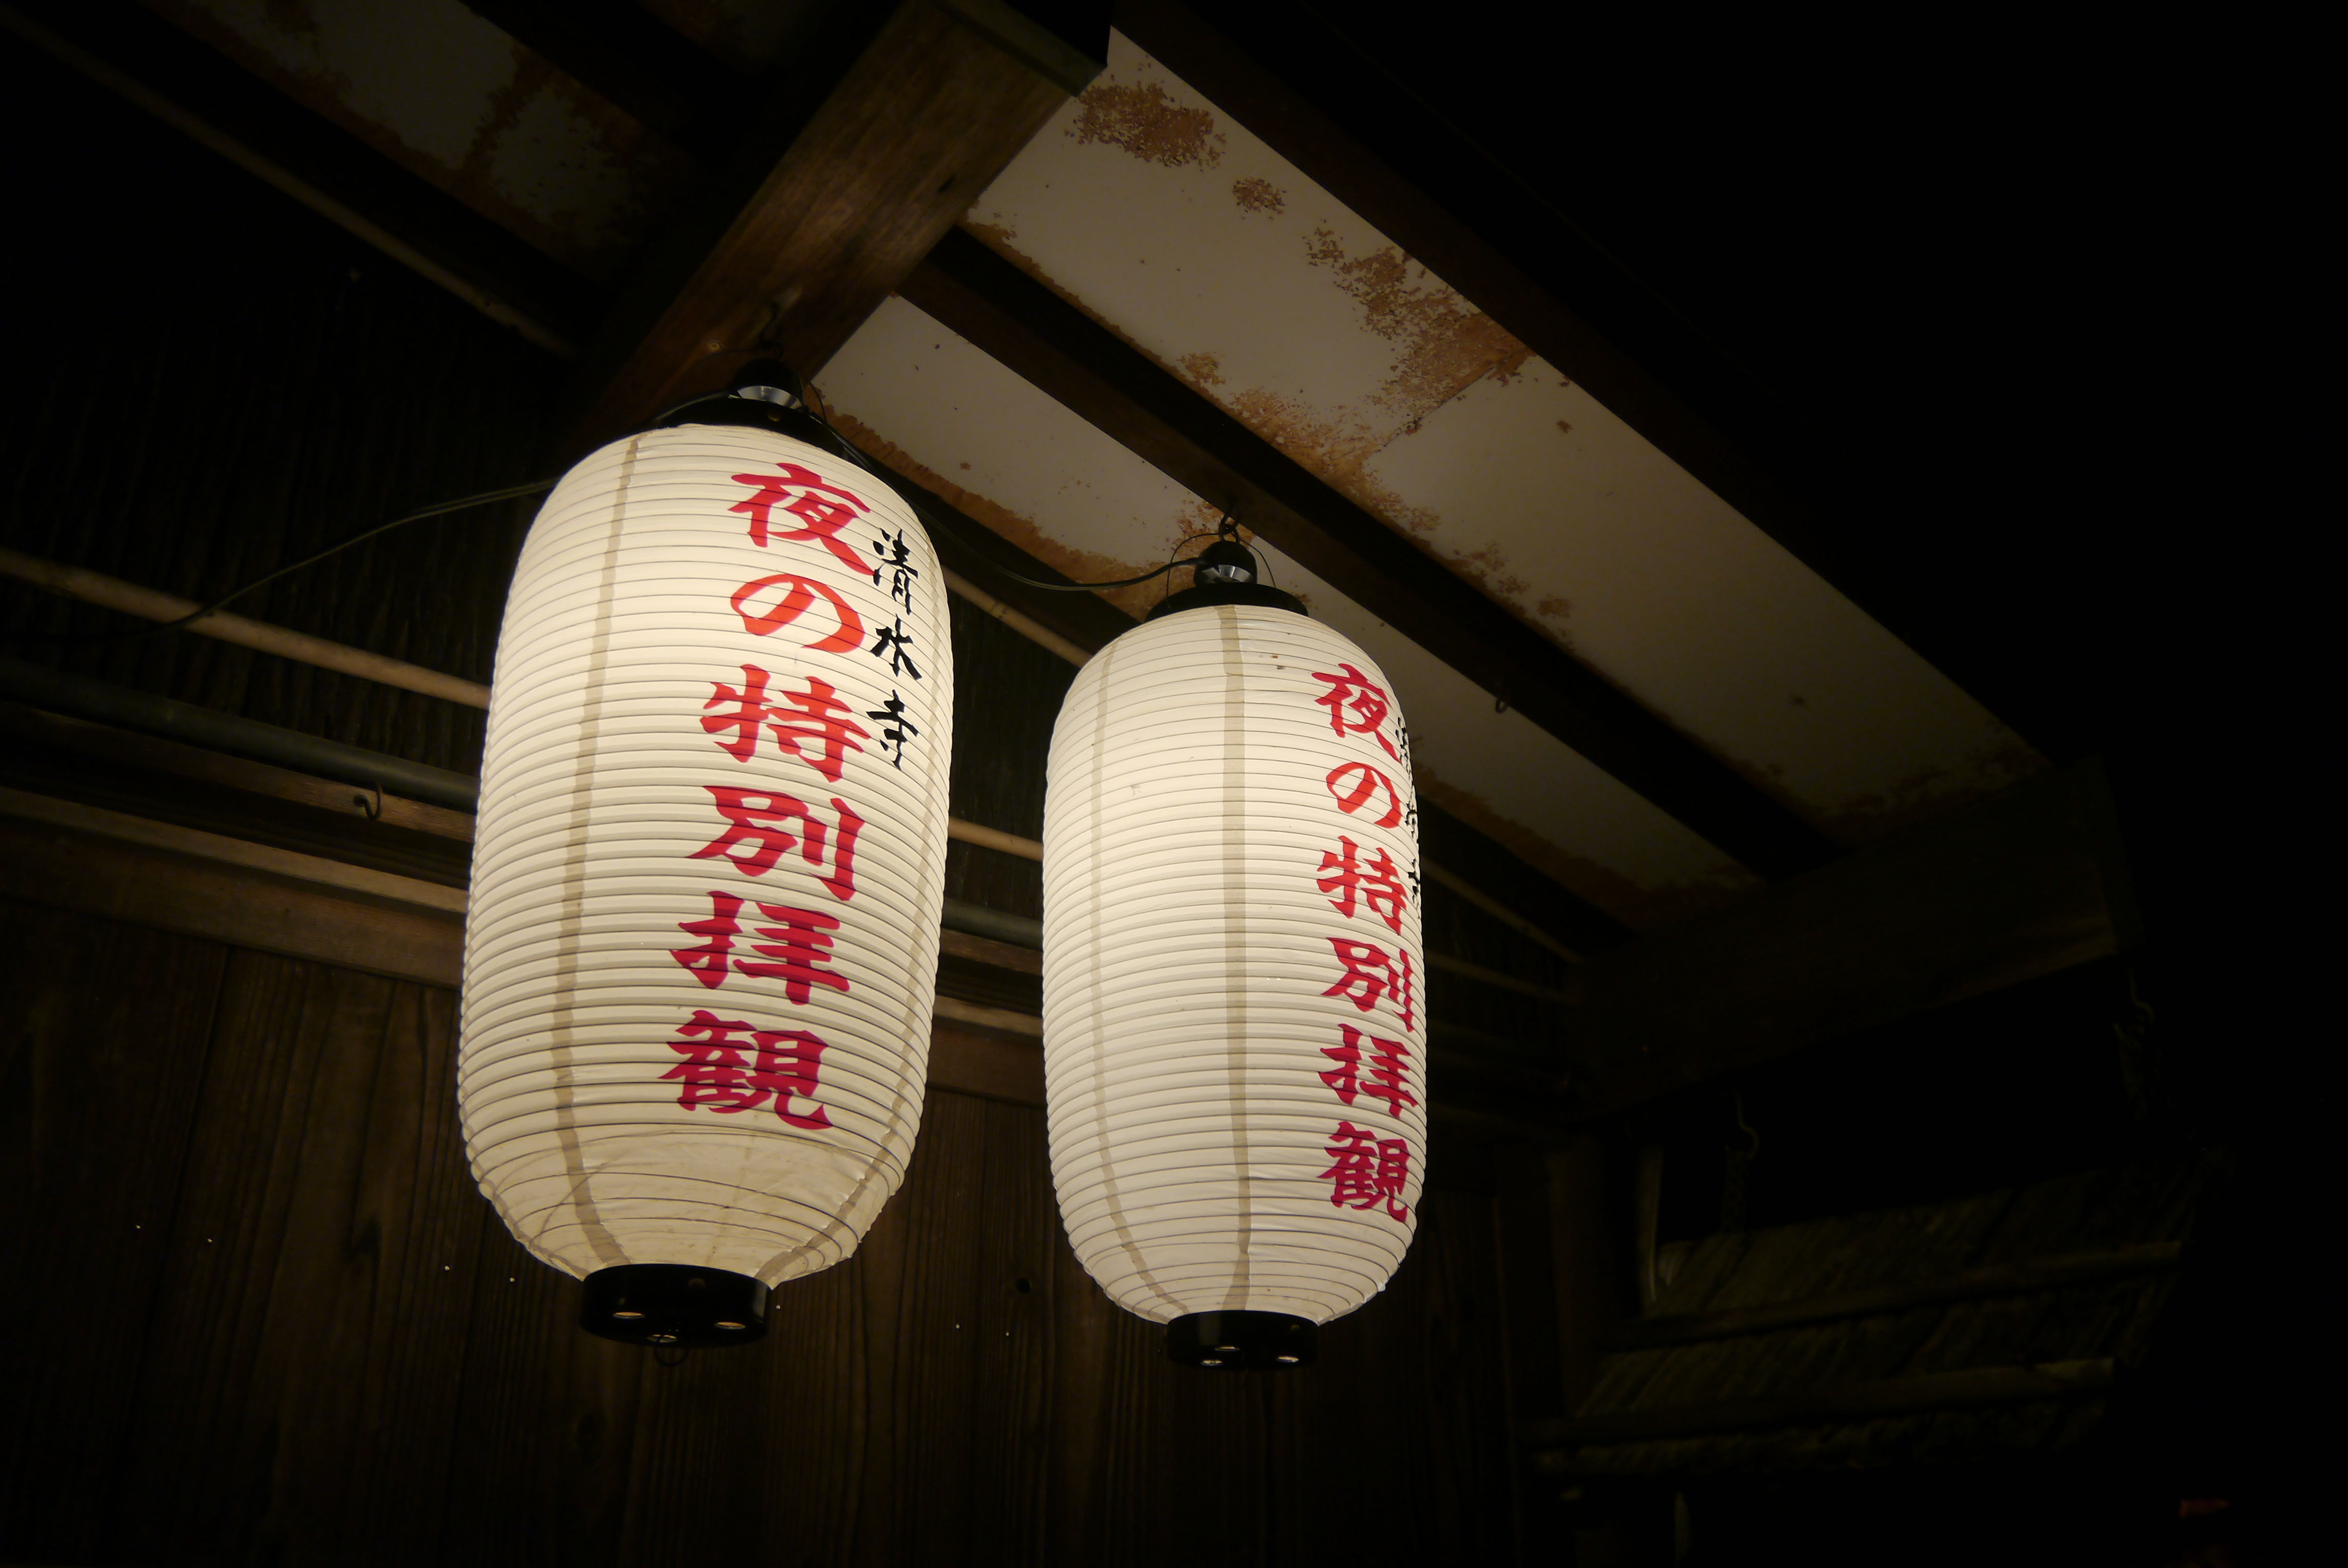 清水寺
夜の特別拝観
夜の特別拝観